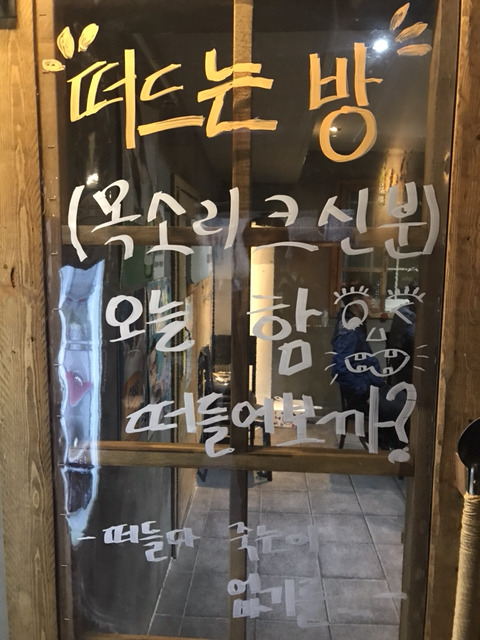 떠드는 방
(목소리 크신분)
오늘 함
떠들어보까?
- 떠들다 죽는이
없기를 -